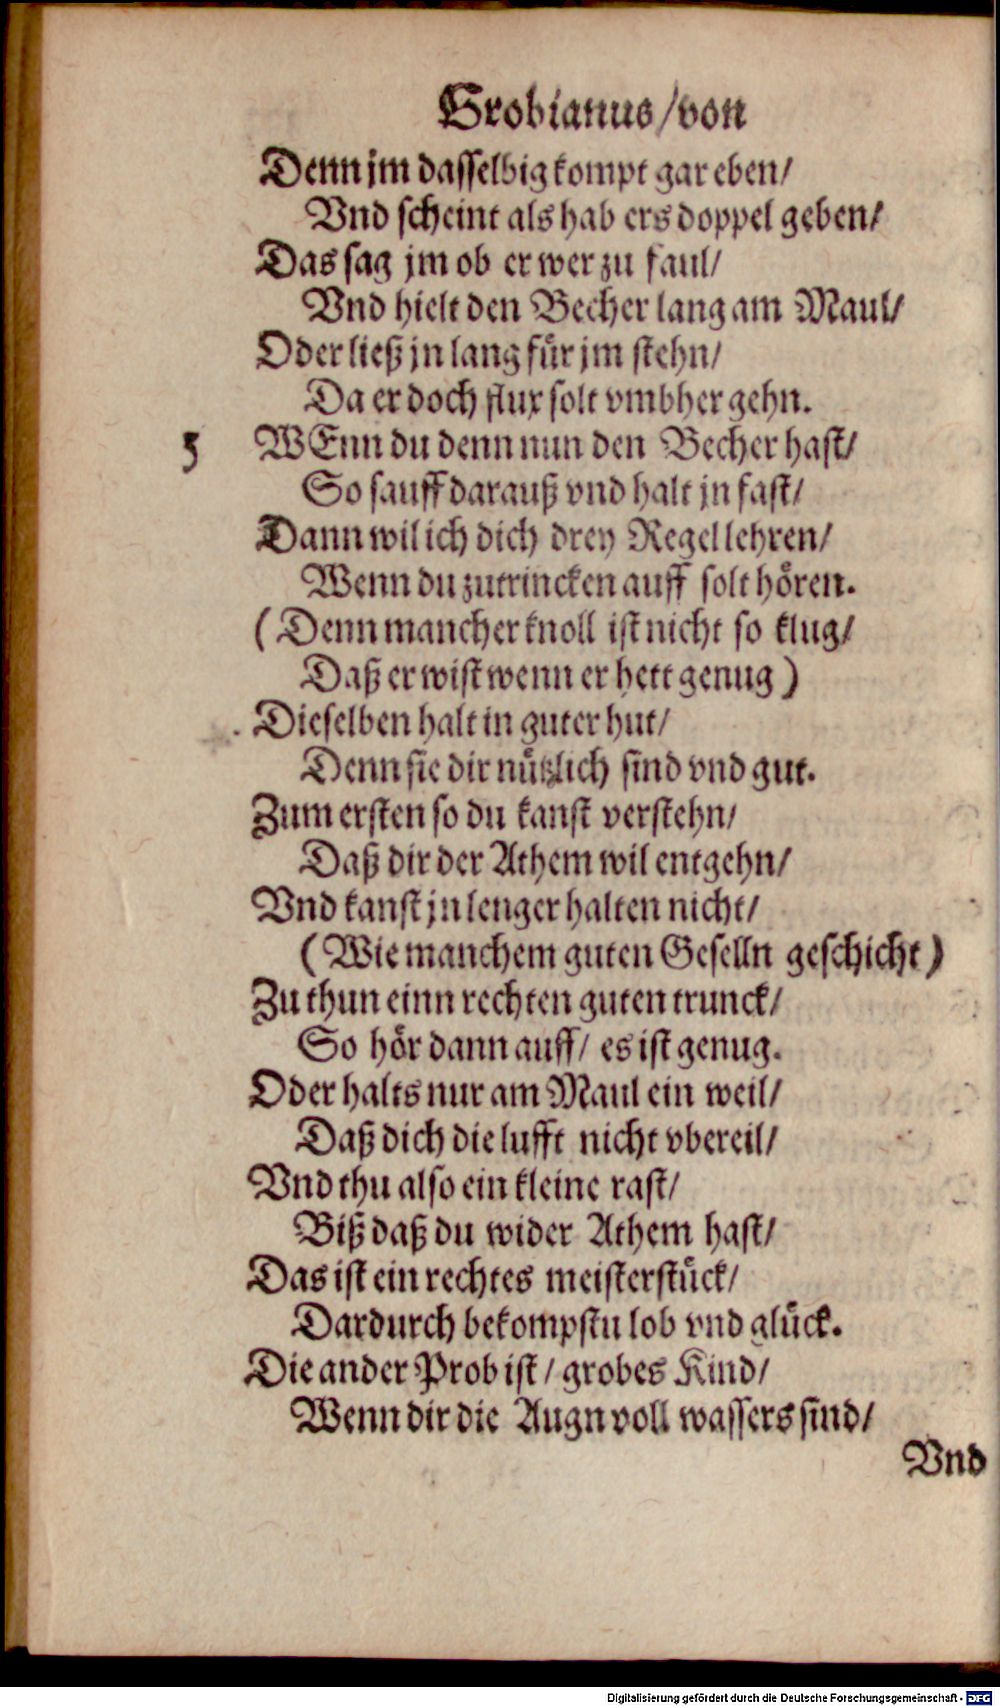 Grobianus/von
Denn jm dasselbig kompt gar eben/
Vnd scheint als hab ers doppel geben/
Das sag jm ob er wer zu faul/
Vnd hielt den Becher lang am Maul/
Oder ließ jn lang für jm stehn/
Da er doch flux solt vmbher gehn.
5 WEnn du denn nun den Becher hast/
So sauff darauß vnd halt jn fast/
Dann wil ich dich drey Regel lehren/
Wenn du zutrincken auff solt hören.
(Denn mancher knoll ist nicht so klug/
Daß er wist wenn er hett genug)
Dieselben halt in guter hut/
Denn sie dir nützlich sind vnd gut.
Zum ersten so du kanst verstehn/
Daß dir der Athem wil entgehn/
Vnd kanst jn lenger halten nicht/
(Wie manchem guten Geselln geschicht)
Zu thun einn rechten guten trunck/
So hör dann auff/ es ist genug.
Oder halts nur am Maul ein weil/
Daß dich die lufft nicht vbereil/
Vnd thu also ein kleine rast/
Biß daß du wider Athem hast/
Das ist ein rechtes meisterstück/
Dardurch bekompstu lob vnd glück.
Die ander Prob ist/ grobes Kind/
Wenn dir die Augn voll wassers sind/
Vnd
Digitalisierung gefördert durch die Deutsche Forschungsgemeinschaft - DFG